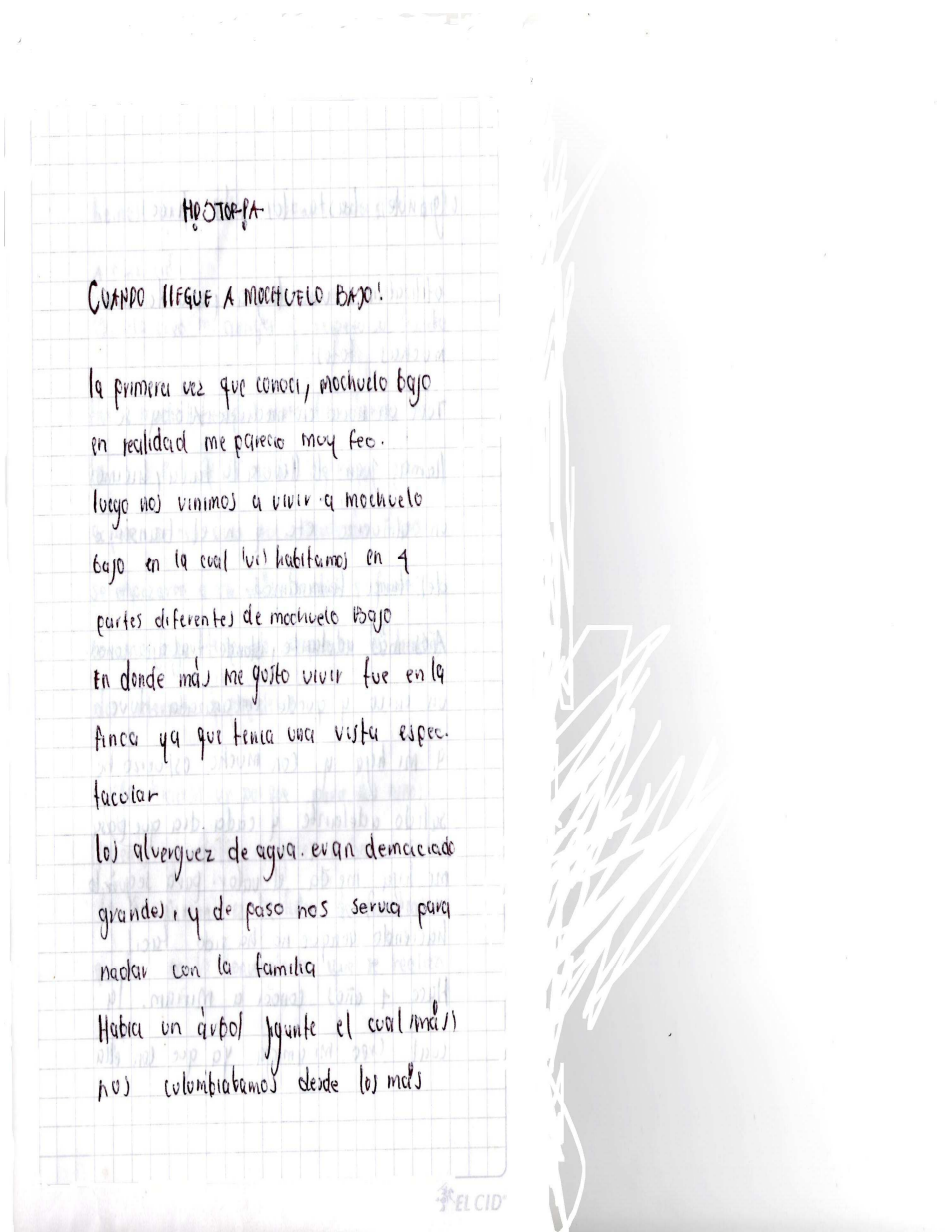 HISTORIA
CUANDO llEGUE A MOCHUELO BAJO!
la primera vez que conoci, mochuelo bajo
en realidad me parecio muy feo.
luego nos vinimos a vivir a mochuelo
bajo en la cual habitamos en 4
partes diferentes de mochuelo Bajo
En donde más me gusto vivir fue en la
finca ya que tenia una vista espec.
tacolar
los alverguez de agua. eran demaciado
grandes, y de paso nos servia para
nadar con la familia
Habia un árbol jigante el cual (más)
nos columbiabamos desde los más
EL CID